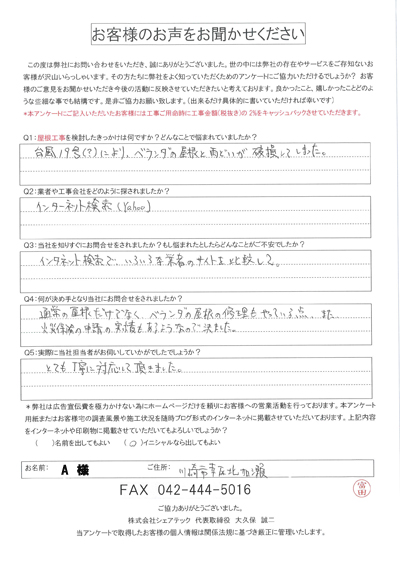 お客様のお声をお聞かせください
この度は弊社にお問い合わせをいただき、誠にありがとうございました。世の中には弊社の存在やサービスをご存知ないお
客様が沢山いらっしゃいます。その方たちに弊社をよく知っていただくためのアンケートにご協力いただけるでしょうか? お客
様のご意見をお聞かせいただき今後の活動に反映させていただきたいと考えております。良かったこと、嬉しかったことどのよ
うな些細な事でも結構です。是非ご協力お願い致します。(出来るだけ具体的に書いていただければ幸いです)
*本アンケートにご記入いただいたお客様には工事ご用命時に工事金額(税抜き)の2%をキャッシュバックさせていただきます。
Q1:屋根工事を検討したきっかけは何ですか?どんなことで悩まれていましたか?
台風19号(?)により、ベランダの屋根と雨どいが破損してしまった。
Q2:業者や工事会社をどのように探されましたか?
インターネット検索(Yahoo)
Q3:当社を知りすぐにお問合せをされましたか?もし悩まれたとしたらどんなことがご不安でしたか?
インタネット検索で、いろいろな業者のサイトを比較して。
Q4:何が決め手となり当社にお問合せをされましたか?
通常の屋根だけでなく、ベランダの屋根の修理もやっている点、また、
火災保険の申請の実績もあるようなので決めました。
Q5:実際に当社担当者がお伺いしていかがでしたでしょうか?
とても丁寧に対応して頂きました。
*弊社は広告宣伝費を極力かけない為にホームページだけを頼りにお客様への営業活動を行っております。本アンケート
用紙またはお客様宅の調査風景や施工状況を随時ブログ形式のインターネットに掲載させていただいております。上記内容
をインターネットや印刷物に掲載させていただいてもよろしいでしょうか?
( )名前を出してもよい (○)イニシャルなら出してもよい
お名前: A 様 ご住所: 川崎市幸区北加瀬
FAX 042-444-5016
ご協力ありがとうございました。
株式会社シェアテック 代表取締役 大久保 誠二
当アンケートで取得したお客様の個人情報は関係法規に基づき厳正に管理いたします。